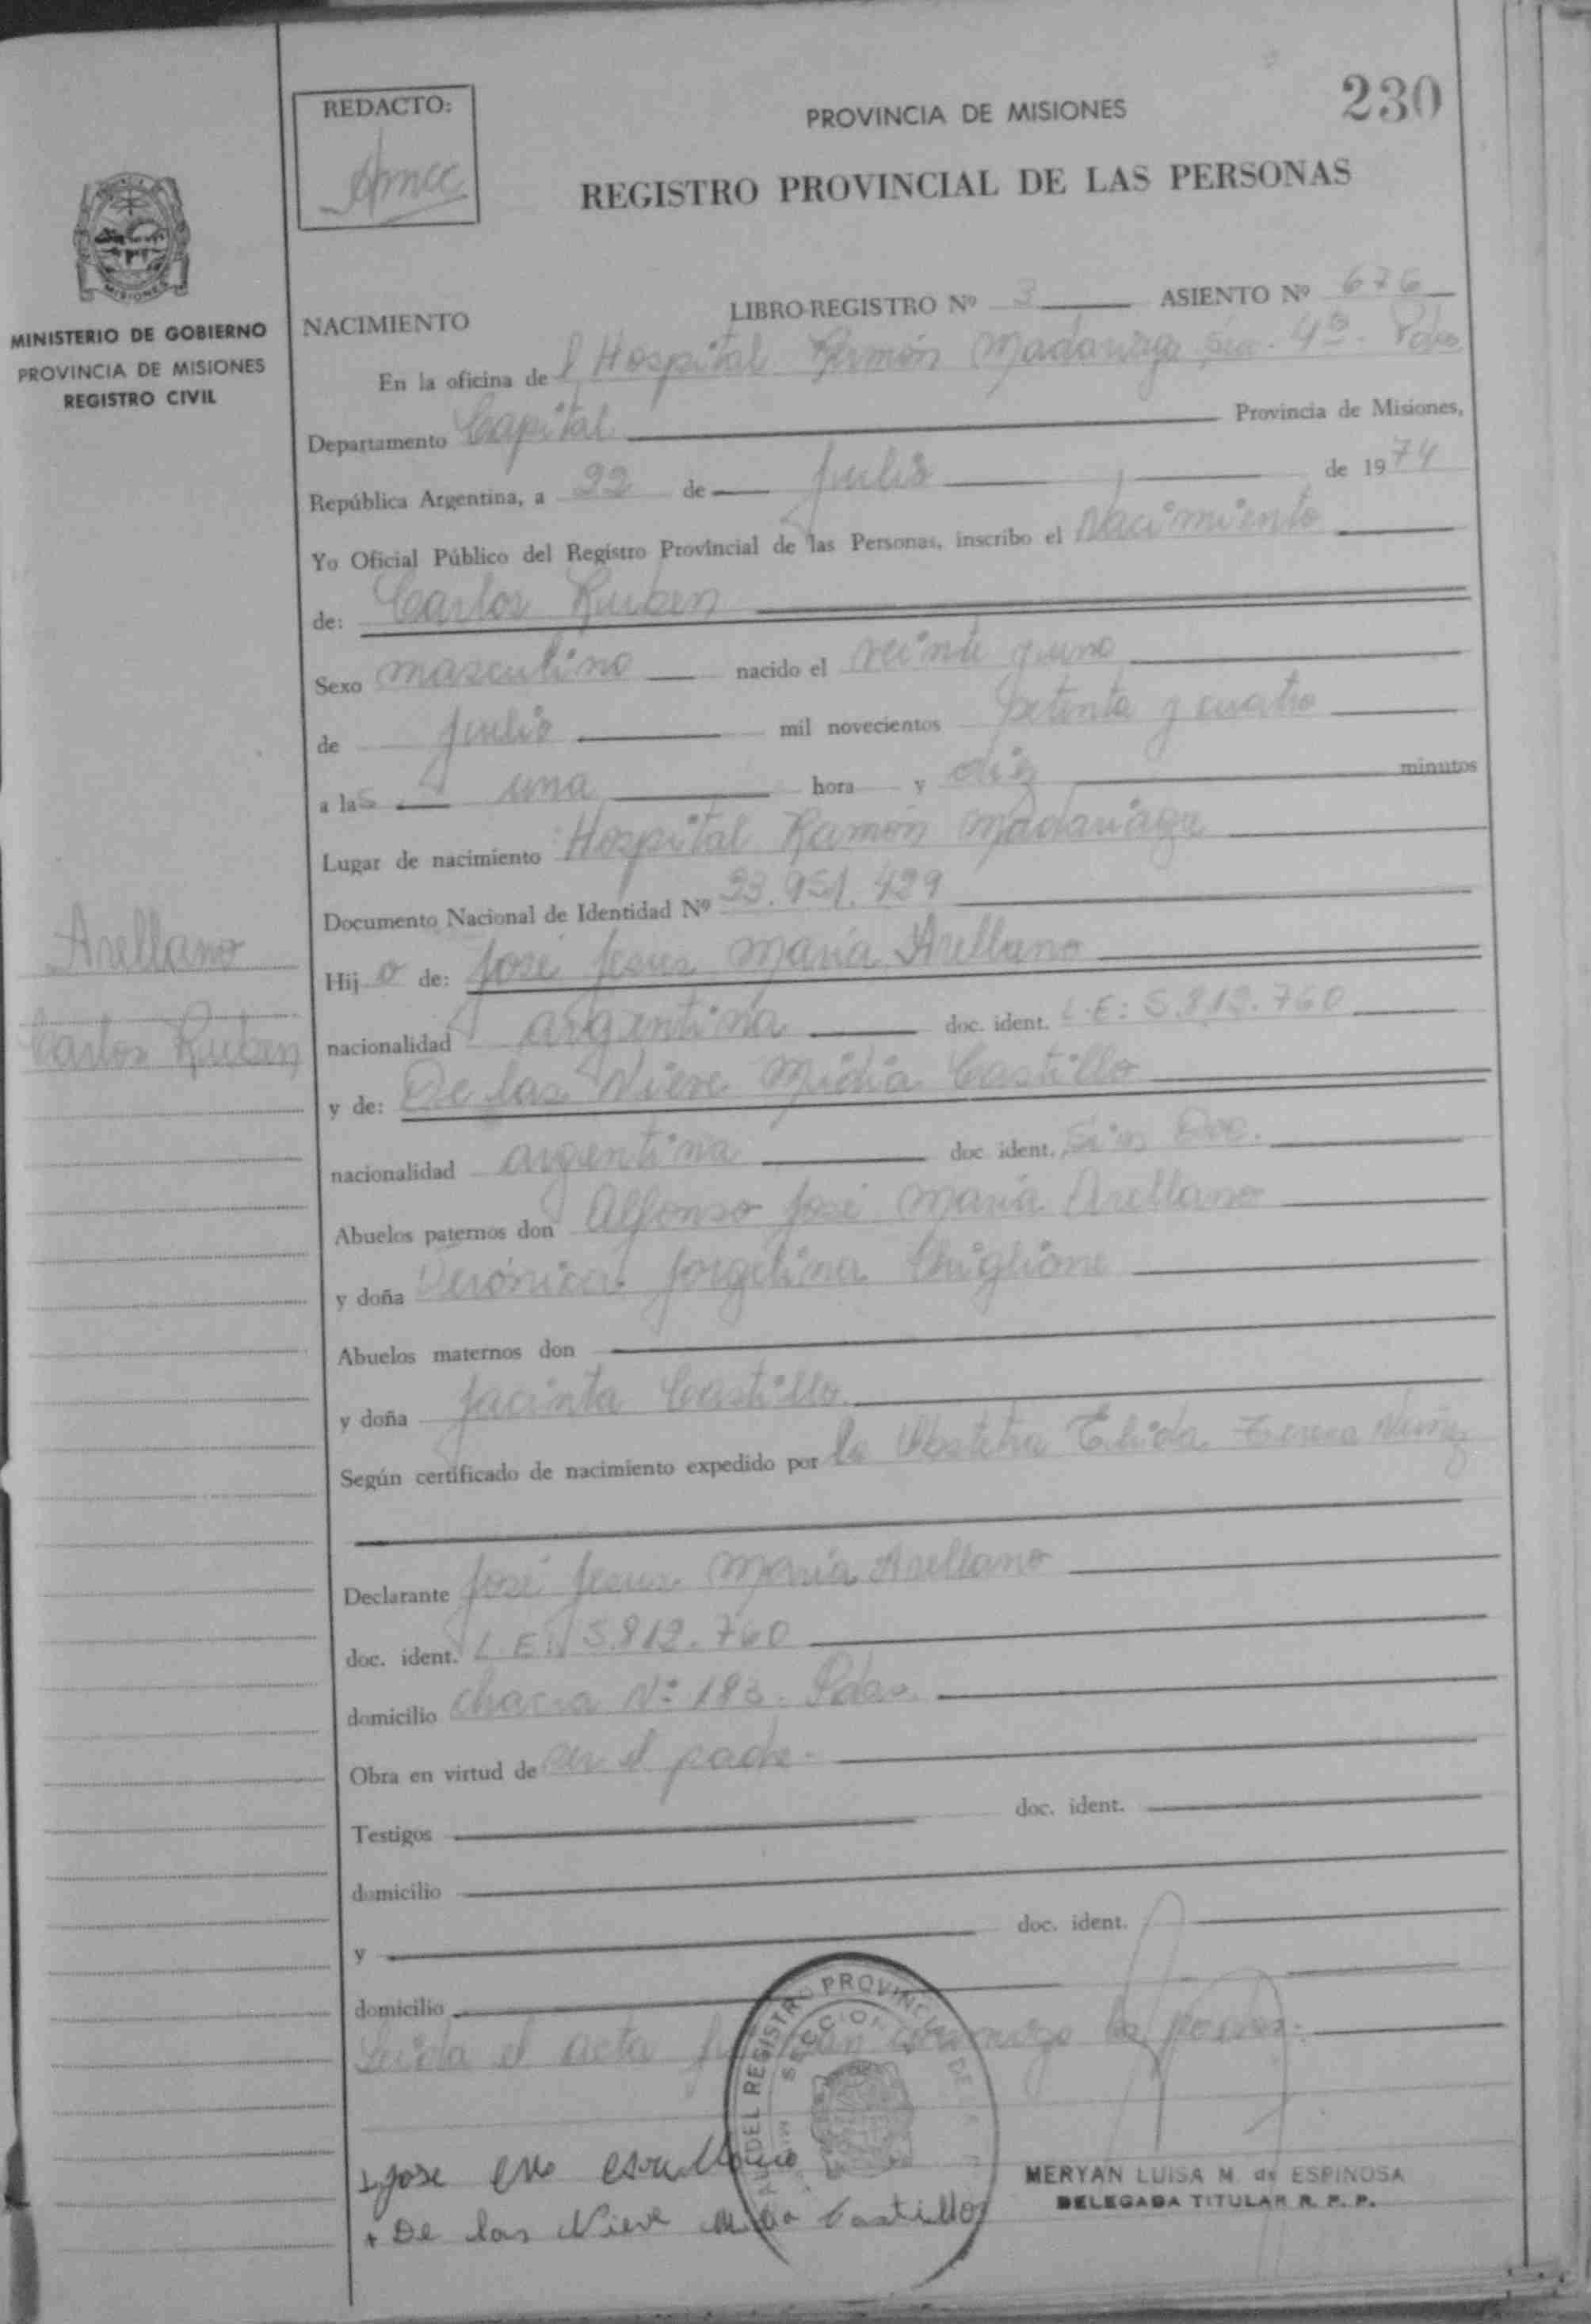 230
REDACTO:
PROVINCIA DE MISIONES
REGISTRO PROVINCIAL DE LAS PERSONAS
MISIONES
MINISTERIO DE GOBIERNO
PROVINCIA DE MISIONES
REGISTRO CIVIL
NACIMIENTO LIBRO-REGISTRO Nº 3 ASIENTO Nº 676
En la oficina de l Hospital Ramón Madariaga Sec. 4ª. Pdas
Departamento Capital Provincia de Misiones,
República Argentina, a 22 de Julio de 1974
Yo Oficial Público del Registro Provincial de las Personas, inscribo el Nacimiento
de: Carlos Ruben
Sexo masculino nacido el veinte y uno
de Julio mil novecientos setenta y cuatro
a las una hora y diez minutos
Lugar de nacimiento Hospital Ramón Madariaga
Documento Nacional de Identidad Nº 23.951.429
Arellano
Hijo de: José Jesus María Arellano
Carlos Ruben
nacionalidad argentina doc. ident. L.E: 5.812.760
y de: De las Nieve Midia Castillo
nacionalidad argentina doc ident. Sin Doc.
Abuelos paternos don Alfonso José María Arellano
y doña Verónica Jorgelina Chiglione
Abuelos maternos don
y doña Jacinta Castillo
Según certificado de nacimiento expedido por la Obstetra Elida Teresa Nuñez
Declarante José Jesus María Arellano
doc. ident. L.E: 5.812.760
domicilio chacra Nº 183. Pdas.
Obra en virtud de ser el padre.
Testigos doc. ident.
domicilio
y doc. ident.
domicilio
Leida el acta firman conmigo los padres.
DEL REGISTRO PROVINCIAL DE LA
SECCION
Jose
De las Nieve Midia Castillo
MERYAN LUISA M. de ESPINOSA
DELEGADA TITULAR R. P. P.